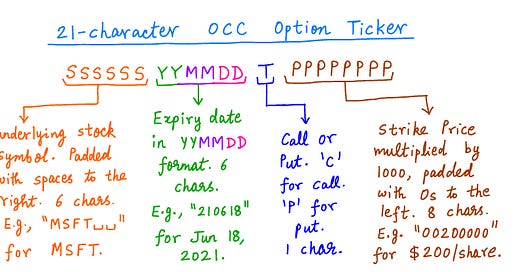 21-character OCC Option Ticker
SSSSSS YYMMDD T PPPPPPPP
underlying stock
symbol. Padded
with spaces to the
right. 6 chars.
E.g., "MSFT␣␣"
for MSFT.
Expiry date
in YYMMDD
format. 6
chars.
E.g., "210618"
for Jun 18,
2021.
Call or
Put. 'C'
for call.
'P' for
put.
1 char.
Strike Price
multiplied by
1000, padded
with 0s to the
left. 8 chars.
E.g. "00200000"
for $200/share.